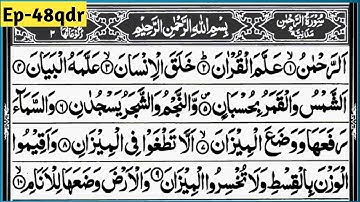 Ep-48qdr
سُوْرَةُ الرَّحْمٰن
بِسْمِ اللّٰهِ الرَّحْمٰنِ الرَّحِيْمِ
اَلرَّحْمٰنُ ۙ﴿۱﴾ عَلَّمَ الْقُرْاٰنَ ؕ﴿۲﴾ خَلَقَ الْاِنْسَانَ ۙ﴿۳﴾ عَلَّمَهُ الْبَيَانَ ﴿۴﴾
اَلشَّمْسُ وَالْقَمَرُ بِحُسْبَانٍ ﴿۵﴾ وَّالنَّجْمُ وَالشَّجَرُ يَسْجُدٰنِ ﴿۶﴾ وَالسَّمَآءَ
رَفَعَهَا وَوَضَعَ الْمِيْزَانَ ۙ﴿۷﴾ اَلَّا تَطْغَوْا فِى الْمِيْزَانِ ﴿۸﴾ وَاَقِيْمُوا
الْوَزْنَ بِالْقِسْطِ وَلَا تُخْسِرُوا الْمِيْزَانَ ﴿۹﴾ وَالْاَرْضَ وَضَعَهَا لِلْاَنَامِ ۙ﴿۱۰﴾